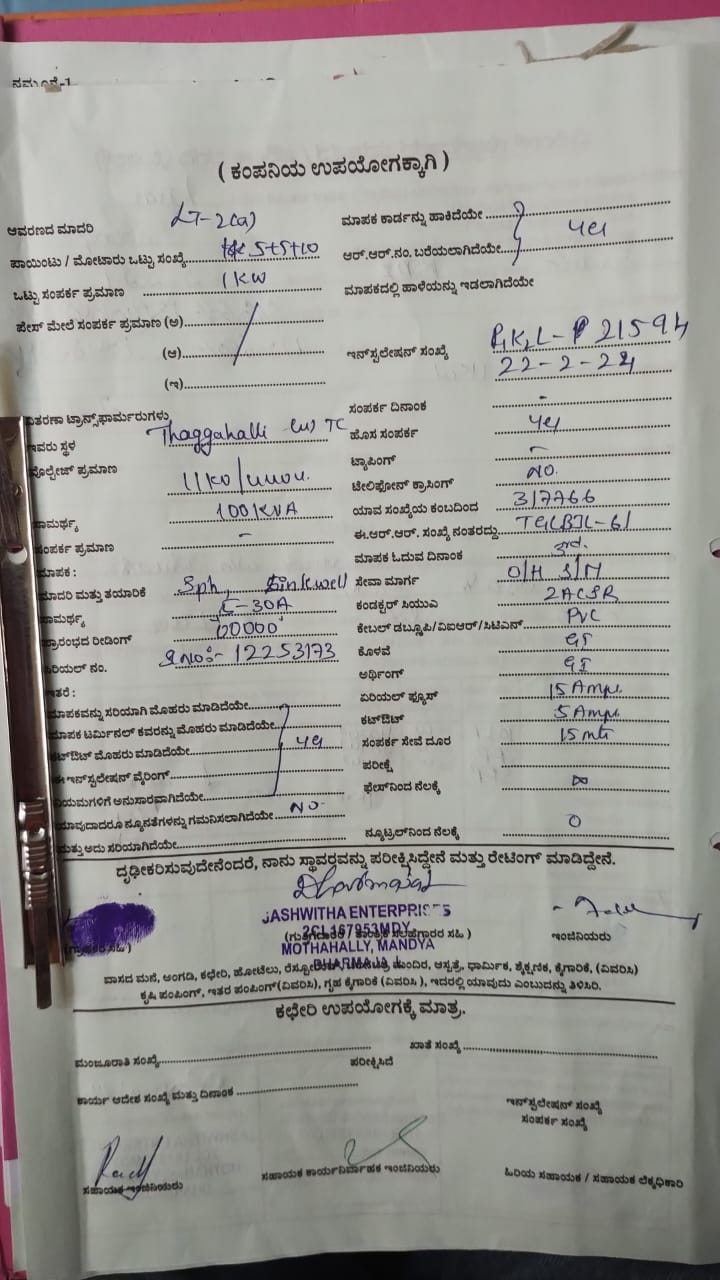 ನಮೂನೆ-1
( ಕಂಪನಿಯ ಉಪಯೋಗಕ್ಕಾಗಿ )
ಆವರಣದ ಮಾದರಿ LT-2(a)
ಪಾಯಿಂಟು / ಮೋಟಾರು ಒಟ್ಟು ಸಂಖ್ಯೆ 5+5+10
ಒಟ್ಟು ಸಂಪರ್ಕ ಪ್ರಮಾಣ 1 KW
ಪೇಸ್ ಮೇಲೆ ಸಂಪರ್ಕ ಪ್ರಮಾಣ (ಅ)
(ಆ)
(ಇ)
ವಿತರಣಾ ಟ್ರಾನ್ಸ್‌ಫಾರ್ಮರುಗಳು
ಇವರು ಸ್ಥಳ Thaggahalli TC
ವೋಲ್ಟೇಜ್ ಪ್ರಮಾಣ
ಸಾಮರ್ಥ್ಯ 100 KVA
ಸಂಪರ್ಕ ಪ್ರಮಾಣ -
ಮಾಪಕ :
ಮಾದರಿ ಮತ್ತು ತಯಾರಿಕೆ Sph,
ಸಾಮರ್ಥ್ಯ 5-30A
ಪ್ರಾರಂಭದ ರೀಡಿಂಗ್ '00000'
ಸಿರಿಯಲ್ ನಂ. 12253173
ಇತರೆ :
ಮಾಪಕವನ್ನು ಸರಿಯಾಗಿ ಮೊಹರು ಮಾಡಿದೆಯೇ
ಮಾಪಕ ಟರ್ಮಿನಲ್ ಕವರನ್ನು ಮೊಹರು ಮಾಡಿದೆಯೇ
ಕಟ್‌ಔಟ್ ಮೊಹರು ಮಾಡಿದೆಯೇ yes
ಈ ಇನ್‌ಸ್ಟಲೇಷನ್ ವೈರಿಂಗ್
ನಿಯಮಗಳಿಗೆ ಅನುಸಾರವಾಗಿದೆಯೇ
ಯಾವುದಾದರೂ ನ್ಯೂನತೆಗಳನ್ನು ಗಮನಿಸಲಾಗಿದೆಯೇ NO.
ಮತ್ತು ಅದು ಸರಿಯಾಗಿದೆಯೇ
ಮಾಪಕ ಕಾರ್ಡನ್ನು ಹಾಕಿದೆಯೇ
ಆರ್.ಆರ್.ನಂ. ಬರೆಯಲಾಗಿದೆಯೇ yes
ಮಾಪಕದಲ್ಲಿ ಹಾಳೆಯನ್ನು ಇಡಲಾಗಿದೆಯೇ
ಇನ್‌ಸ್ಟಲೇಷನ್ ಸಂಖ್ಯೆ 21594
22-2-22
ಸಂಪರ್ಕ ದಿನಾಂಕ -
ಹೊಸ ಸಂಪರ್ಕ yes
ಟ್ಯಾಪಿಂಗ್ -
ಟೆಲಿಫೋನ್ ಕ್ರಾಸಿಂಗ್ NO.
ಯಾವ ಸಂಖ್ಯೆಯ ಕಂಬದಿಂದ 317766
ಈ.ಆರ್.ಆರ್. ಸಂಖ್ಯೆ ನಂತರದ್ದು
ಮಾಪಕ ಓದುವ ದಿನಾಂಕ
ಸೇವಾ ಮಾರ್ಗ O/H S/M
ಕಂಡಕ್ಟರ್ ಸಿಯುಎ 2ACSR
ಕೇಬಲ್ ಡಬ್ಲೂಪಿ/ವಿಐಆರ್/ಸಿಟಿಎಸ್ PVC
ಕೊಳವೆ GI
ಅರ್ಥಿಂಗ್ GI
ಏರಿಯಲ್ ಫ್ಯೂಸ್ 15 Amp.
ಕಟ್‌ಔಟ್ 5 Amp.
ಸಂಪರ್ಕ ಸೇವೆ ದೂರ 15 mtr
ಪರೀಕ್ಷೆ
ಫೇಸ್‌ನಿಂದ ನೆಲಕ್ಕೆ ∞
ನ್ಯೂಟ್ರಲ್‌ನಿಂದ ನೆಲಕ್ಕೆ 0
ದೃಢೀಕರಿಸುವುದೇನೆಂದರೆ, ನಾನು ಸ್ಥಾವರವನ್ನು ಪರೀಕ್ಷಿಸಿದ್ದೇನೆ ಮತ್ತು ರೇಟಿಂಗ್ ಮಾಡಿದ್ದೇನೆ.
JASHWITHA ENTERPRISES
2CL167953MDY
MOTHAHALLY, MANDYA
ಇಂಜಿನಿಯರು
ವಾಸದ ಮನೆ, ಅಂಗಡಿ, ಕಛೇರಿ, ಹೋಟೆಲು, ಮಂದಿರ, ಆಸ್ಪತ್ರೆ, ಧಾರ್ಮಿಕ, ಶೈಕ್ಷಣಿಕ, ಕೈಗಾರಿಕೆ, (ವಿವರಿಸಿ)
ಕೃಷಿ ಪಂಪಿಂಗ್, ಇತರ ಪಂಪಿಂಗ್(ವಿವರಿಸಿ), ಗೃಹ ಕೈಗಾರಿಕೆ (ವಿವರಿಸಿ), ಇದರಲ್ಲಿ ಯಾವುದು ಎಂಬುದನ್ನು ತಿಳಿಸಿರಿ.
ಕಛೇರಿ ಉಪಯೋಗಕ್ಕೆ ಮಾತ್ರ.
ಮಂಜೂರಾತಿ ಸಂಖ್ಯೆ ಖಾತೆ ಸಂಖ್ಯೆ
ಪರೀಕ್ಷಿಸಿದೆ
ಕಾರ್ಯ ಆದೇಶ ಸಂಖ್ಯೆ ಮತ್ತು ದಿನಾಂಕ
ಇನ್‌ಸ್ಟಲೇಷನ್ ಸಂಖ್ಯೆ
ಸಂಪರ್ಕ ಸಂಖ್ಯೆ
ಸಹಾಯಕ ಇಂಜಿನಿಯರು ಸಹಾಯಕ ಕಾರ್ಯನಿರ್ವಾಹಕ ಇಂಜಿನಿಯರು ಹಿರಿಯ ಸಹಾಯಕ / ಸಹಾಯಕ ಲೆಕ್ಕಧಿಕಾರಿ